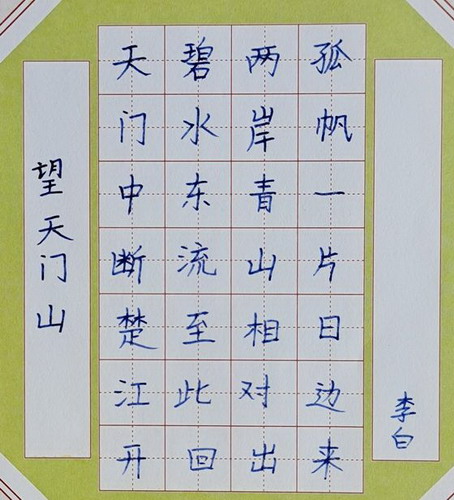 望天门山
天门中断楚江开
碧水东流至此回
两岸青山相对出
孤帆一片日边来
李白